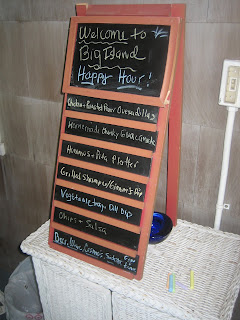 Welcome to
Big Island
Happy Hour!
Chicken + Roasted Pepper Quesadillas
Homemade Chunky Guacamole
Hummus + Pita Platter
Grilled Shrimp w/
Vegetable tray + Dill Dip
Chips + Salsa
Beer, Wine,